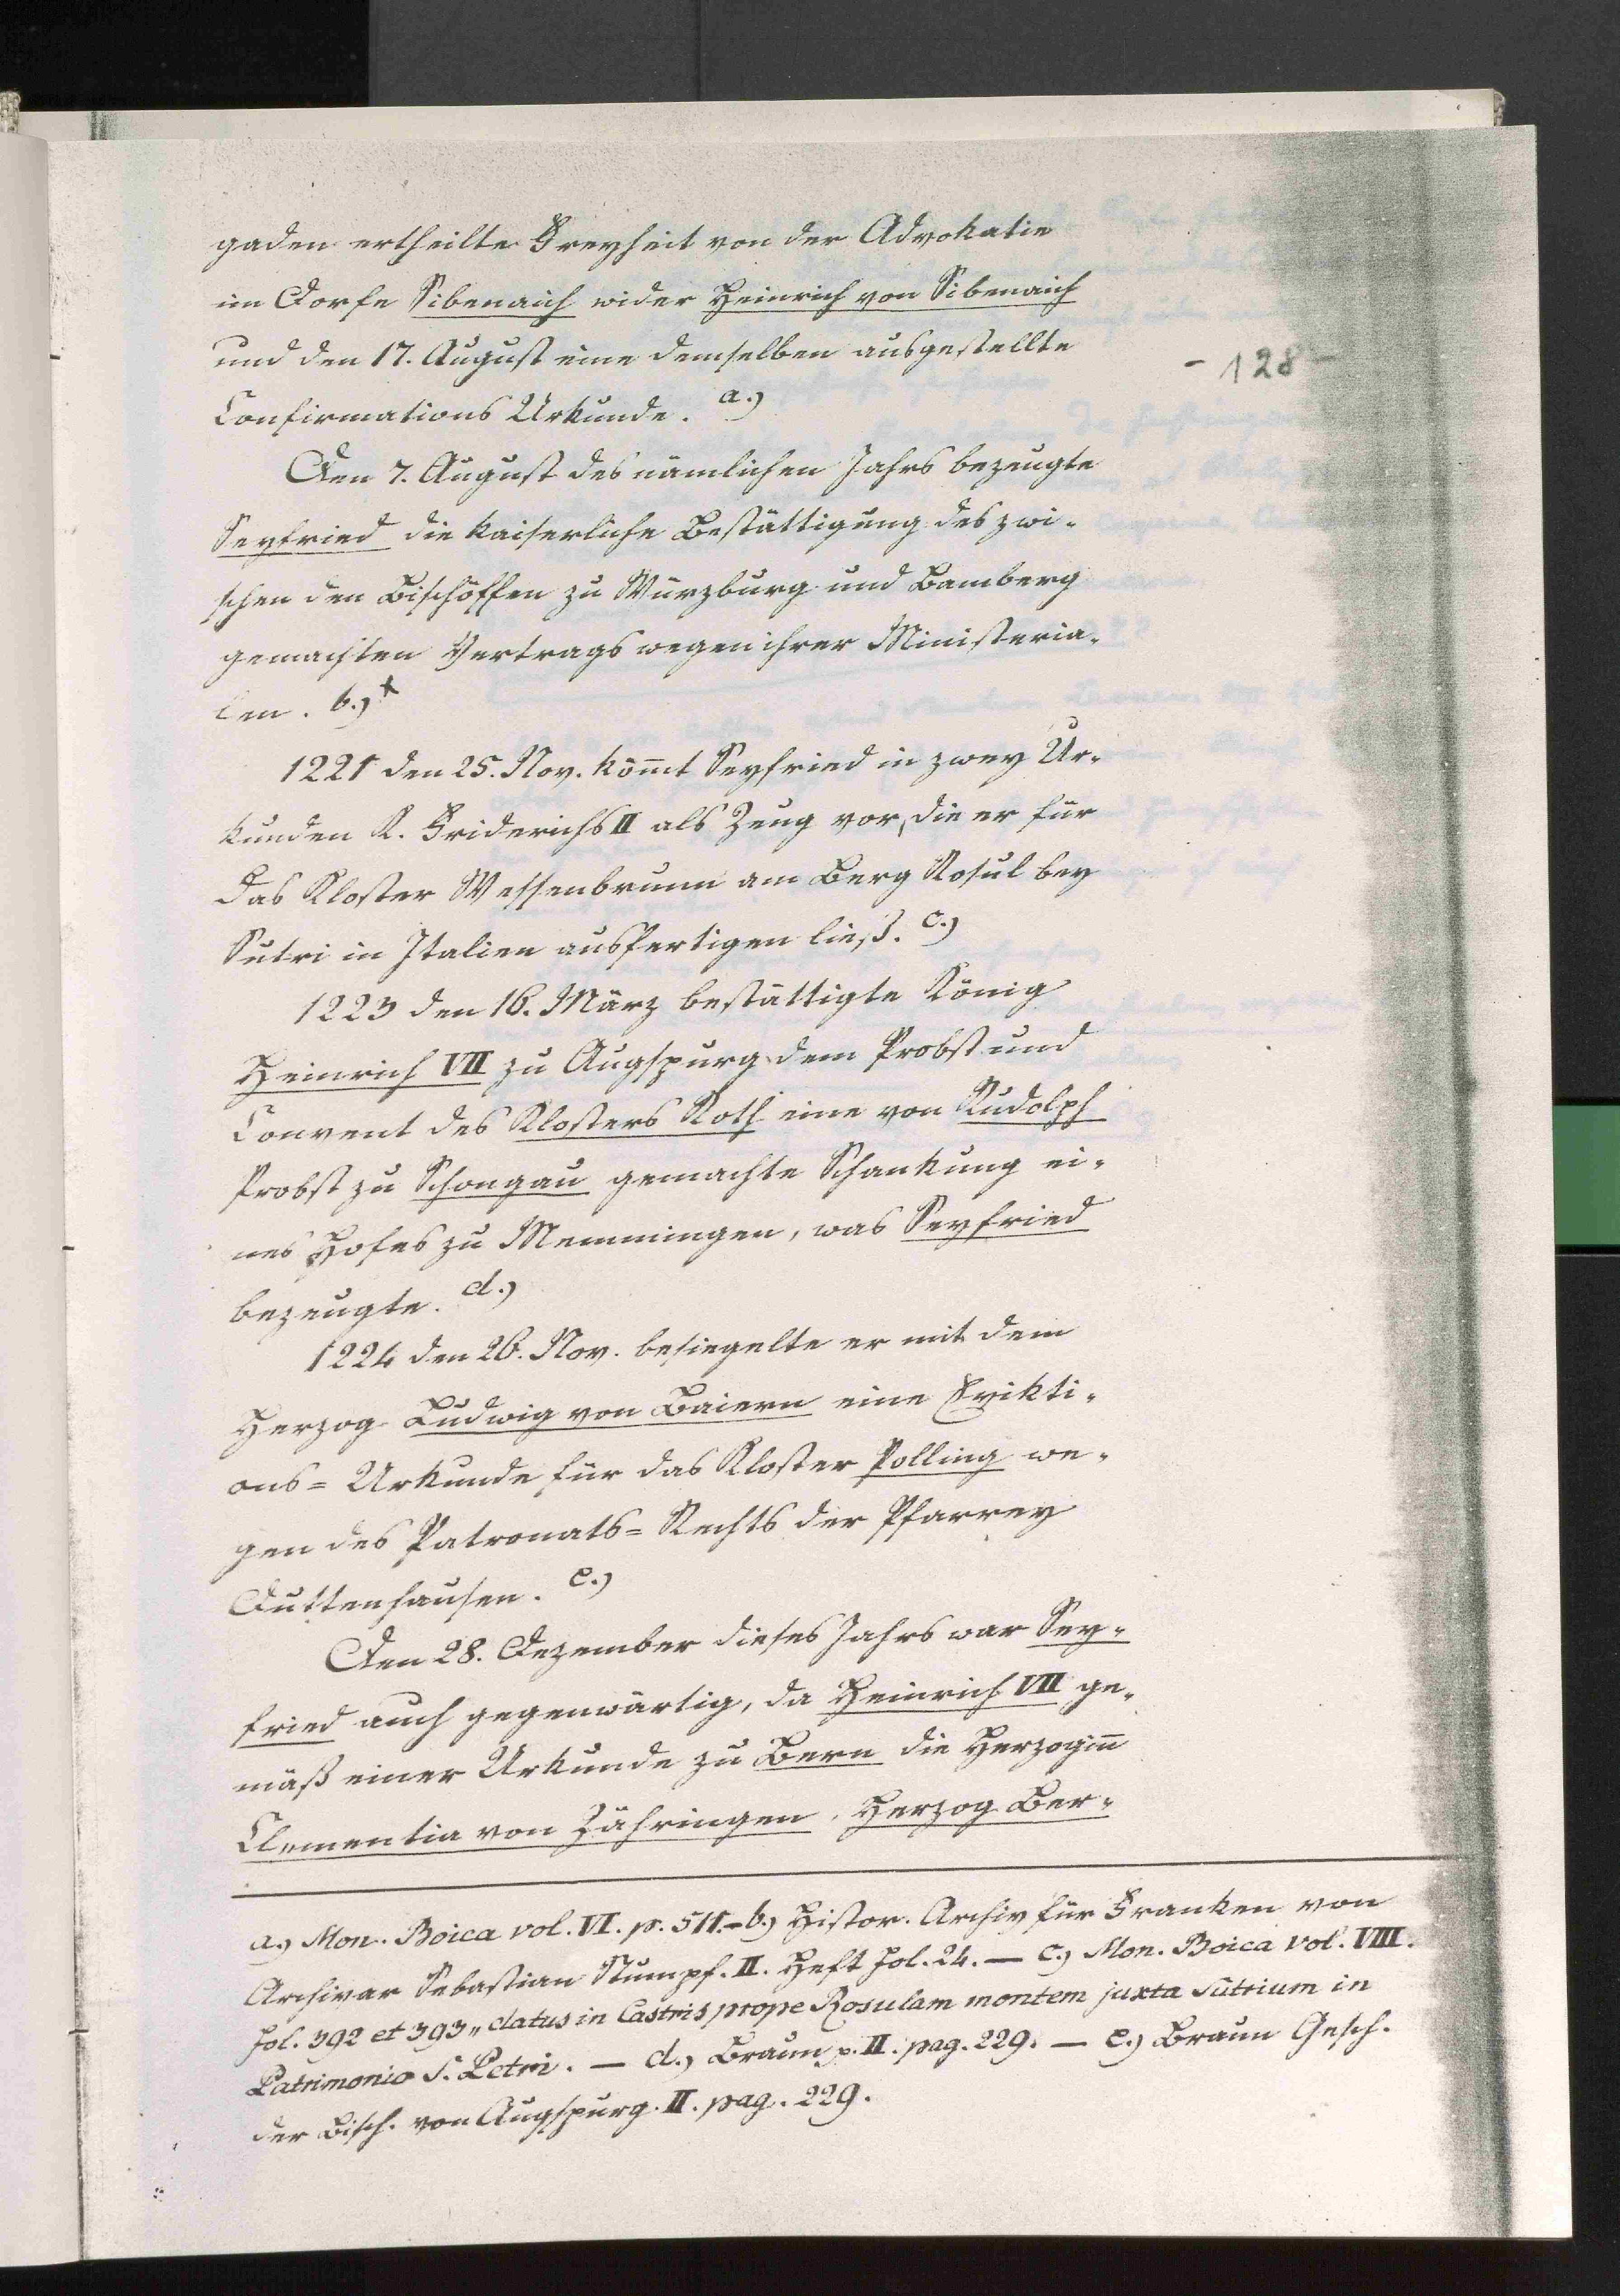 gaden ertheilte Freyheit von der Advokatie
im Dorfe Sibenaich wider Heinrich von Sibenaich
und den 17. August eine demselben ausgestellte
- 128 -
Confirmations Urkunde. a.)
Den 7. August des nämlichen Jahrs bezeugte
Seyfried die kaiserliche Bestättigung des zwi-
schen den Bischöffen zu Würzburg und Bamberg
gemachten Vertrags wegen ihrer Ministeria-
len. b.)
1221 den 25. Nov. kömt Seyfried in zwey Ur-
kunden K. Friderichs II als Zeug vor, die er für
das Kloster Wessenbrunn am Berg Rosul bey
Sutri in Italien ausfertigen ließ. c.)
1223 den 16. März bestättigte König
Heinrich VII zu Augspurg dem Probst und
Convent des Klosters Roth eine von Rudolph
Probst zu Schongau gemachte Schankung ei-
nes Hofes zu Memmingen, was Seyfried
bezeugte. d.)
1224 den 26. Nov. besiegelte er mit dem
Herzog Ludwig von Baiern eine Evikti-
ons= Urkunde für das Kloster Polling we-
gen des Patronats= Rechts der Pfarrey
Duttenhausen. e.)
Den 28. Dezember dieses Jahrs war Sey-
fried auch gegenwärtig, da Heinrich VII ge-
mäß einer Urkunde zu Bern die Herzogin
Clementia von Zähringen, Herzog Ber-
a.) Mon. Boica vol. VI. p. 511. - b.) Histor. Archiv für Franken von
Archivar Sebastian Stumpf. II. Heft fol. 24. — c.) Mon. Boica vol. VIII.
fol. 392 et 393 „ datus in Castris prope Rosulam montem juxta Sutrium in
Patrimonio S. Petri. — d.) Braun p. II. pag. 229. — e.) Braun Gesch.
der Bisch. von Augspurg. II. pag. 229.